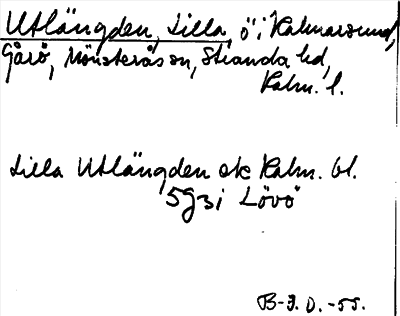 Utlängden, Lilla, ö i Kalmarsund,
Gårö, Mönsterås sn, Stranda hd,
Kalm. l.
Lilla Utlängden ek Kalm. bl.
5g3i Lövö
B-J. O. -55.